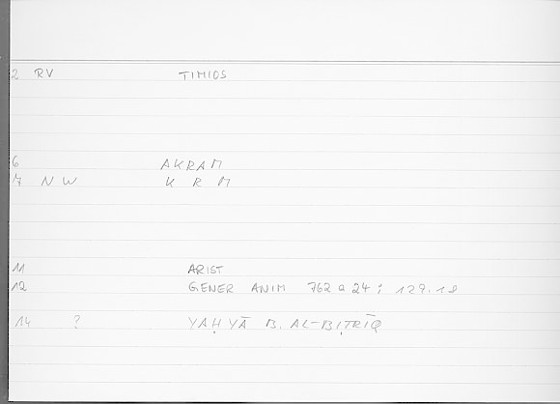 2 RV TIMIOS
6 AKRAM
7 NW K R M
11 ARIST
12 GENER ANIM 762 a 24 ; 129.18
14 ? YAḤYĀ B. AL-BIṬRĪQ